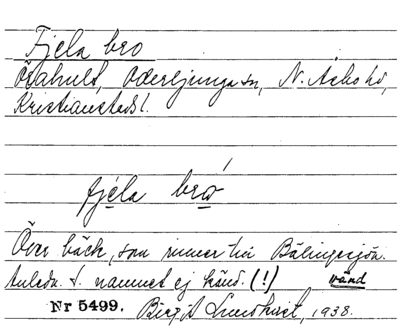 Fjela bro
Örahult, Oderljunga sn, N. Åsbo hd,
Kristianstads l.
fjéla bró
Över bäck, som rinner till Bälingesjön.
Anledn. t. namnet ej känd. (!) vänd
Nr 5499. Birgit Lundkvist, 1938.